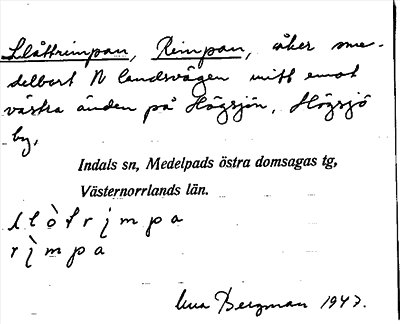 Slåttrimpan, Reimpan, åker ome-
delbart N landsvägen mitt emot
västra änden på Högsjön, Högsjö
by.
Indals sn, Medelpads östra domsagas tg,
Västernorrlands län.
slò̀trimpa
rìmpa
Bergman 1947.